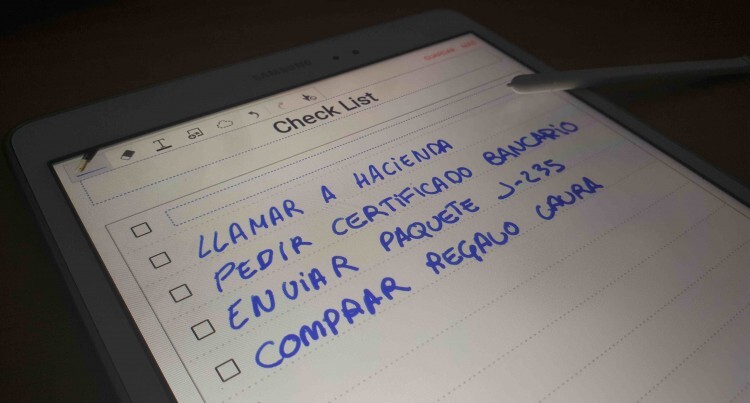 SAMSUNG
Check List
LLAMAR A HACIENDA
PEDIR CERTIFICADO BANCARIO
ENVIAR PAQUETE J-235
COMPRAR REGALO LAURA